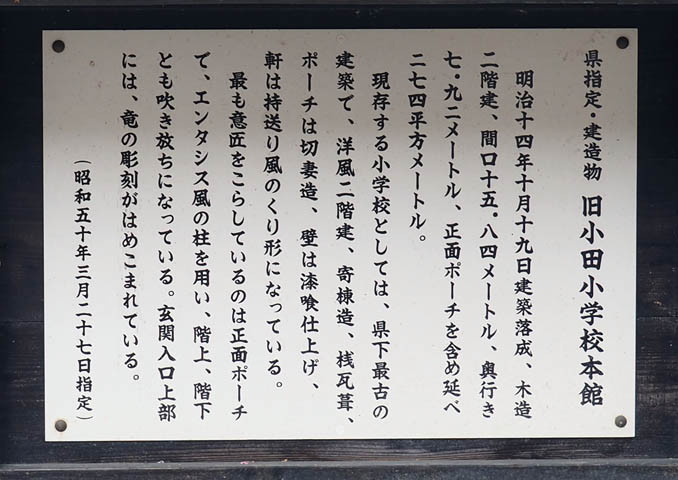 県指定・建造物 旧小田小学校本館
明治十四年十月十九日建築落成、木造
二階建、間口十五・八四メートル、奥行き
七・九二メートル、正面ポーチを含め延べ
二七四平方メートル。
現存する小学校としては、県下最古の
建築で、洋風二階建、寄棟造、桟瓦葺、
ポーチは切妻造、壁は漆喰仕上げ、
軒は持送り風のくり形になっている。
最も意匠をこらしているのは正面ポーチ
で、エンタシス風の柱を用い、階上、階下
とも吹き放ちになっている。玄関入口上部
には、竜の彫刻がはめこまれている。
（昭和五十年三月二十七日指定）